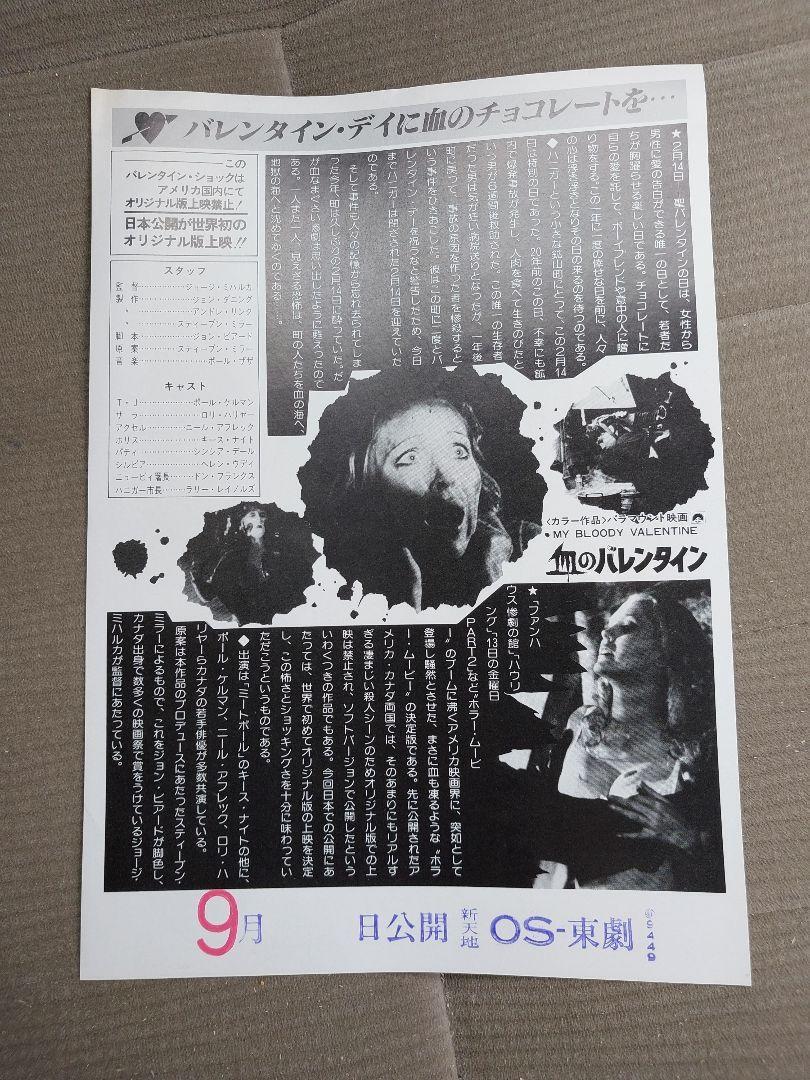 バレンタイン・デイに血のチョコレートを…
★2月14日―聖バレンタインの日は、女性から
男性に愛の告白ができる唯一の日として、若者た
ちが胸躍らせる楽しい日である。チョコレートに
自らの愛を託して、ボーイフレンドや意中の人に贈
り物をする、この一年に一度の倖せな日を前に、人々
の心は浮き浮きとなりその日の来るのを待つのである。
◆ハニガーという小さな鉱山町にとって、この2月14
日は特別の日であった。20年前のこの日、不幸にも鉱
内で爆発事故が発生し、人肉を食べて生きのびたと
いう男が6週間後救助された。この唯一の生存者
だった男は気が狂い病院送りとなったが、一年後
町に戻って、事故の原因を作った者を惨殺すると
いう事件をひきおこした。彼はこの町に二度とバ
レンタイン・デーを祝うなと警告したため、今日
までハニガーは閉ざされた2月14日を迎えていた
のである。
そして事件も人々の記憶から忘れ去られてしま
った今年、町は久しぶりの2月14日に酔っていた。だ
が血なまぐさい惨劇は思い出したように甦えったので
ある。一人また一人、見えざる恐怖は、町の人たちを血の海へ、
地獄の海へと沈めてゆくのである……。
この
バレンタイン・ショックは
アメリカ国内にて
オリジナル版上映禁止!
日本公開が世界初の
オリジナル版上映!!
スタッフ
監督……ジョージ・ミハルカ
製作……ジョン・ダニング
〃……アンドレ・リンク
〃……スティーブン・ミラー
脚本……ジョン・ビアード
原案……スティーブン・ミラー
音楽……ポール・ザザ
キャスト
T・J……ポール・ケルマン
サラ……ロリ・ハリヤー
アクセル……ニール・アフレック
ホリス……キース・ナイト
パティ……シンシア・デール
シルビア……ヘレン・ウディ
ニュービィ署長……ドン・フランクス
ハニガー市長……ラリー・レイノルズ
〈カラー作品〉パラマウント映画
MY BLOODY VALENTINE
血のバレンタイン
★「ファンハ
ウス惨劇の館」「ハウリ
ング」「13日の金曜日
PART2」など〝ホラー・ムービ
ー〟のブームに沸くアメリカ映画界に、突如として
登場し騒然とさせた、まさに血も凍るような〝ホラ
ー・ムービー〟の決定版である。先に公開されたア
メリカ・カナダ両国では、そのあまりにもリアルす
ぎる凄まじい殺人シーンのためオリジナル版での上
映は禁止され、ソフトバージョンで公開したという
いわくつきの作品でもある。今回日本での公開にあ
たっては、世界で初めてオリジナル版の上映を決定
し、この怖さとショッキングさを十分に味わってい
ただこうというものである。
◆出演は「ミートボール」のキース・ナイトの他に、
ポール・ケルマン、ニール・アフレック、ロリ・ハ
リヤーらカナダの若手俳優が多数共演している。
原案は本作品のプロデュースにあたったスティーブン・
ミラーによるもので、これをジョン・ビアードが脚色し、
カナダ出身で数多くの映画祭で賞をうけているジョージ・
ミハルカが監督にあたっている。
9月 日公開 新天地 OS-東劇 9449